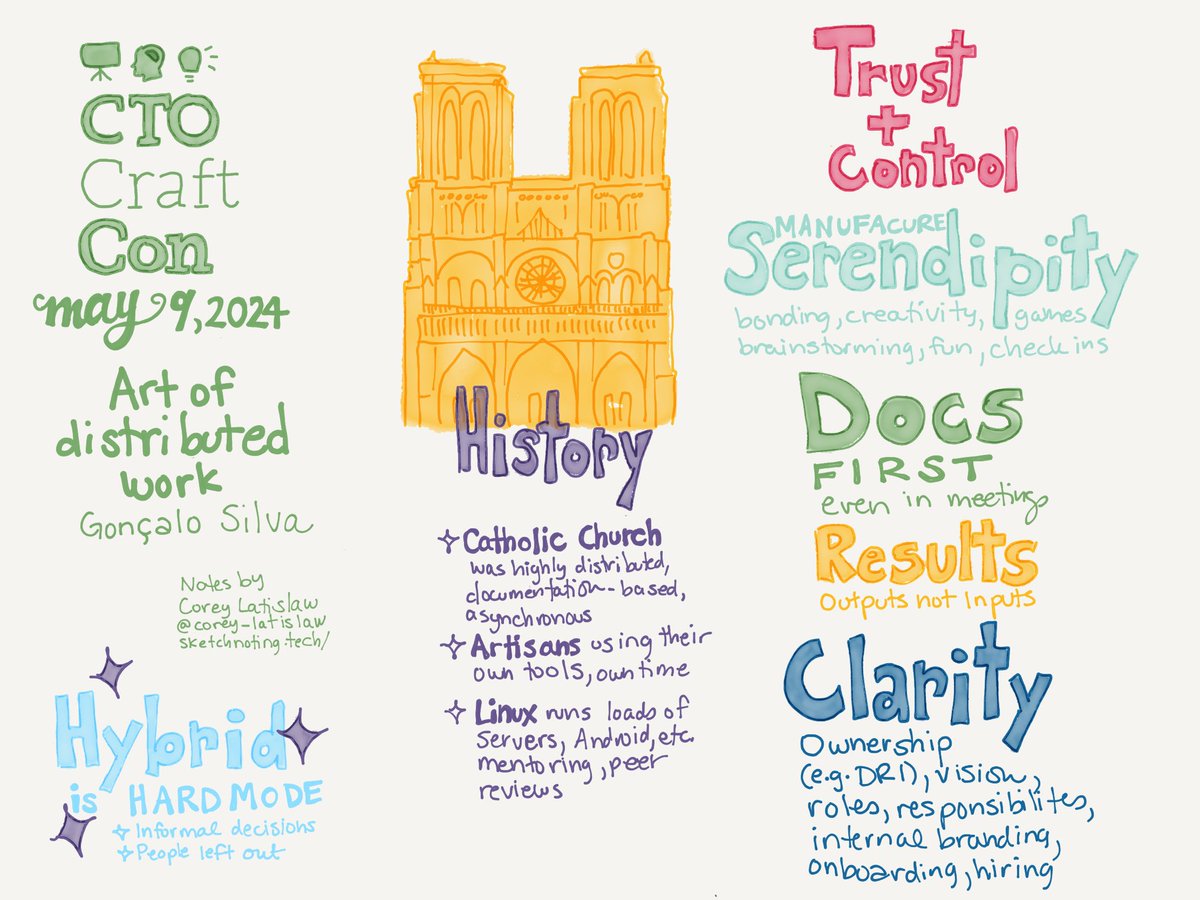 CTO
Craft
Con
may 9, 2024
Art of
distributed
work
Gonçalo Silva
Notes by
Corey Latislaw
@corey-latislaw
sketchnoting.tech/
Hybrid
is HARD MODE
Informal decisions
People left out
History
Catholic Church
was highly distributed,
documentation-based,
asynchronous
Artisans using their
own tools, own time
Linux runs loads of
servers, Android, etc.
mentoring, peer
reviews
Trust
+
Control
MANUFACURE
Serendipity
bonding, creativity, games
brainstorming, fun, check ins
DOCS
FIRST
even in meetings
Results
Outputs not Inputs
Clarity
Ownership
(e.g. DRI), vision,
roles, responsibilites,
internal branding,
onboarding, hiring